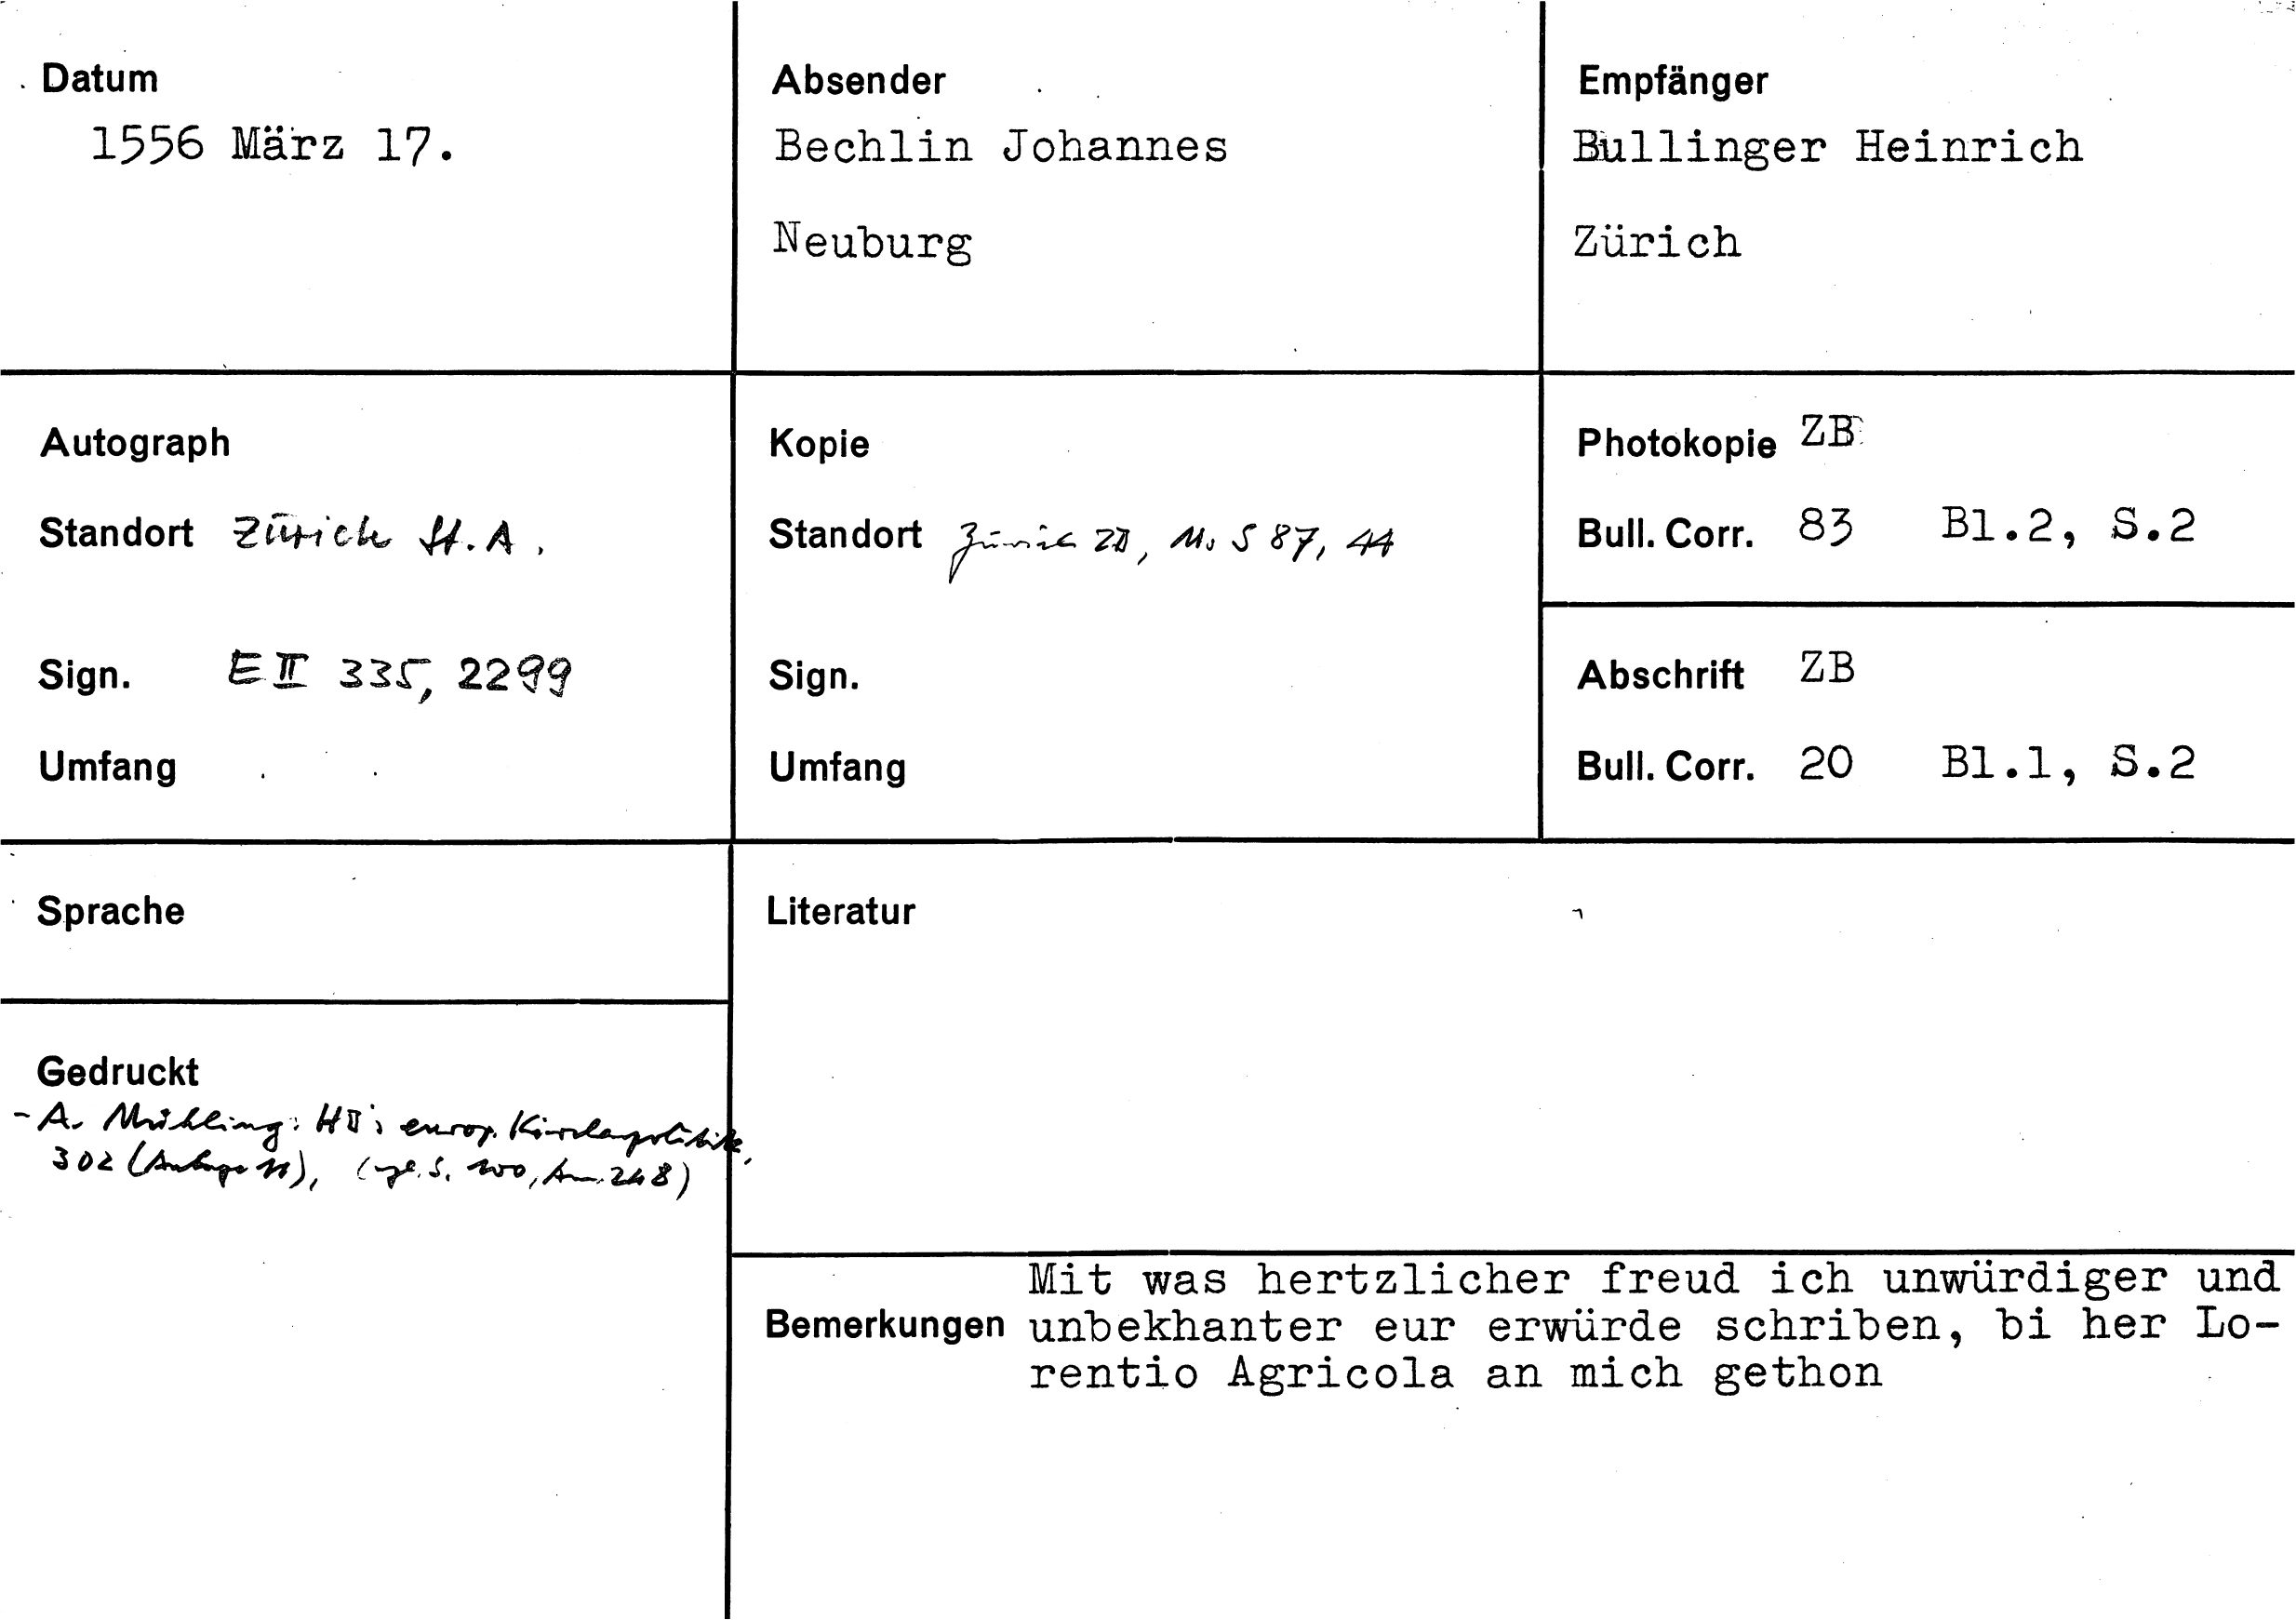 Datum
1556 März 17.
Absender
Bechlin Johannes
Neuburg
Empfänger
Bullinger Heinrich
Zürich
Autograph
Standort Zürich St.A.
Sign. E II 335, 2299
Umfang
Kopie
Standort Zürich ZB, Ms S 87, 44
Sign.
Umfang
Photokopie ZB
Bull. Corr. 83 Bl.2, S.2
Abschrift ZB
Bull. Corr. 20 Bl.1, S.2
Sprache
Gedruckt
- A. Mühling: HB's europ. Kirchenpolitik,
302 (Anlage 11), S. 100, Anm. 248)
Literatur
Bemerkungen
Mit was hertzlicher freud ich unwürdiger und
unbekhanter eur erwürde schriben, bi her Lo-
rentio Agricola an mich gethon